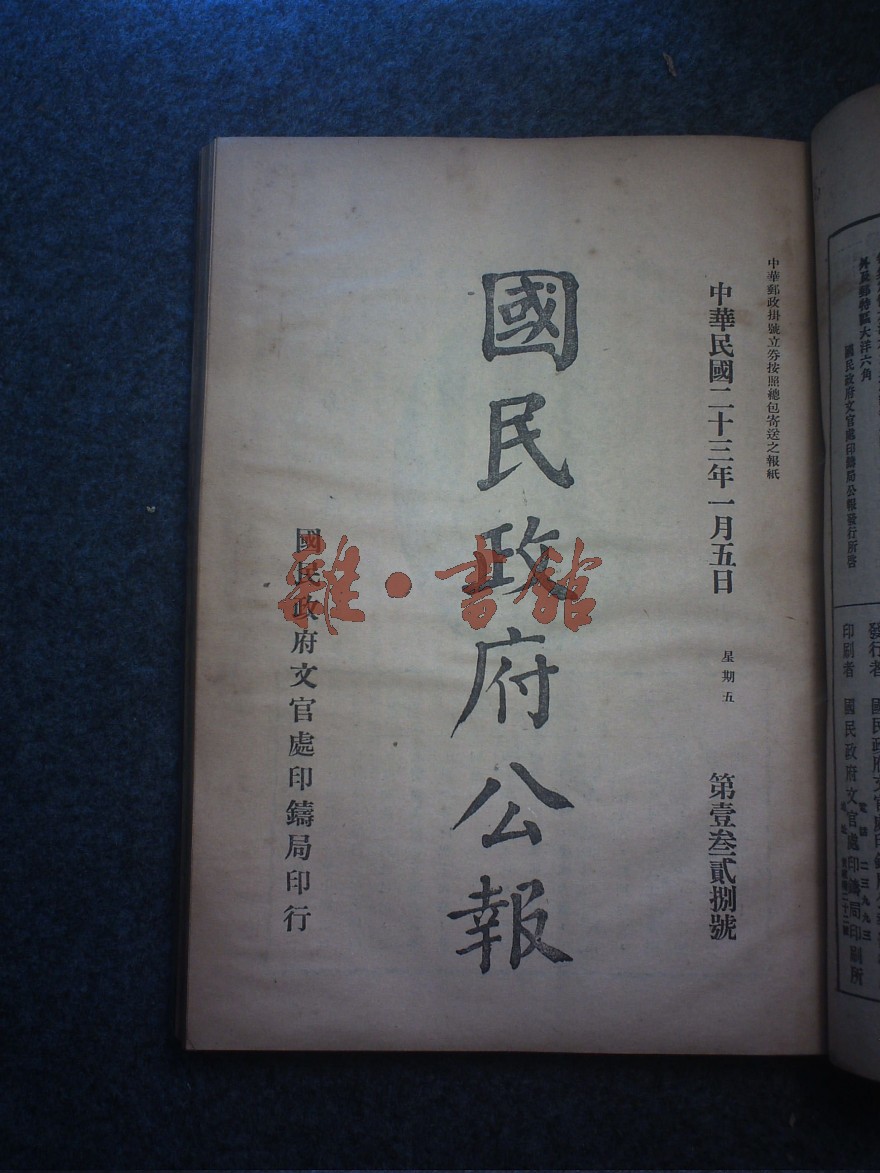 中華郵政掛號立券按照總包寄送之報紙
中華民國二十三年一月五日 星期五 第壹叁貳捌號
國民政府公報
國民政府文官處印鑄局印行
雜·書館
大洋六角
國民政府文官處印鑄局公報發行所啓
發行者 國民政府文官處印鑄局
印刷者 國民政府文官處印鑄局印刷所